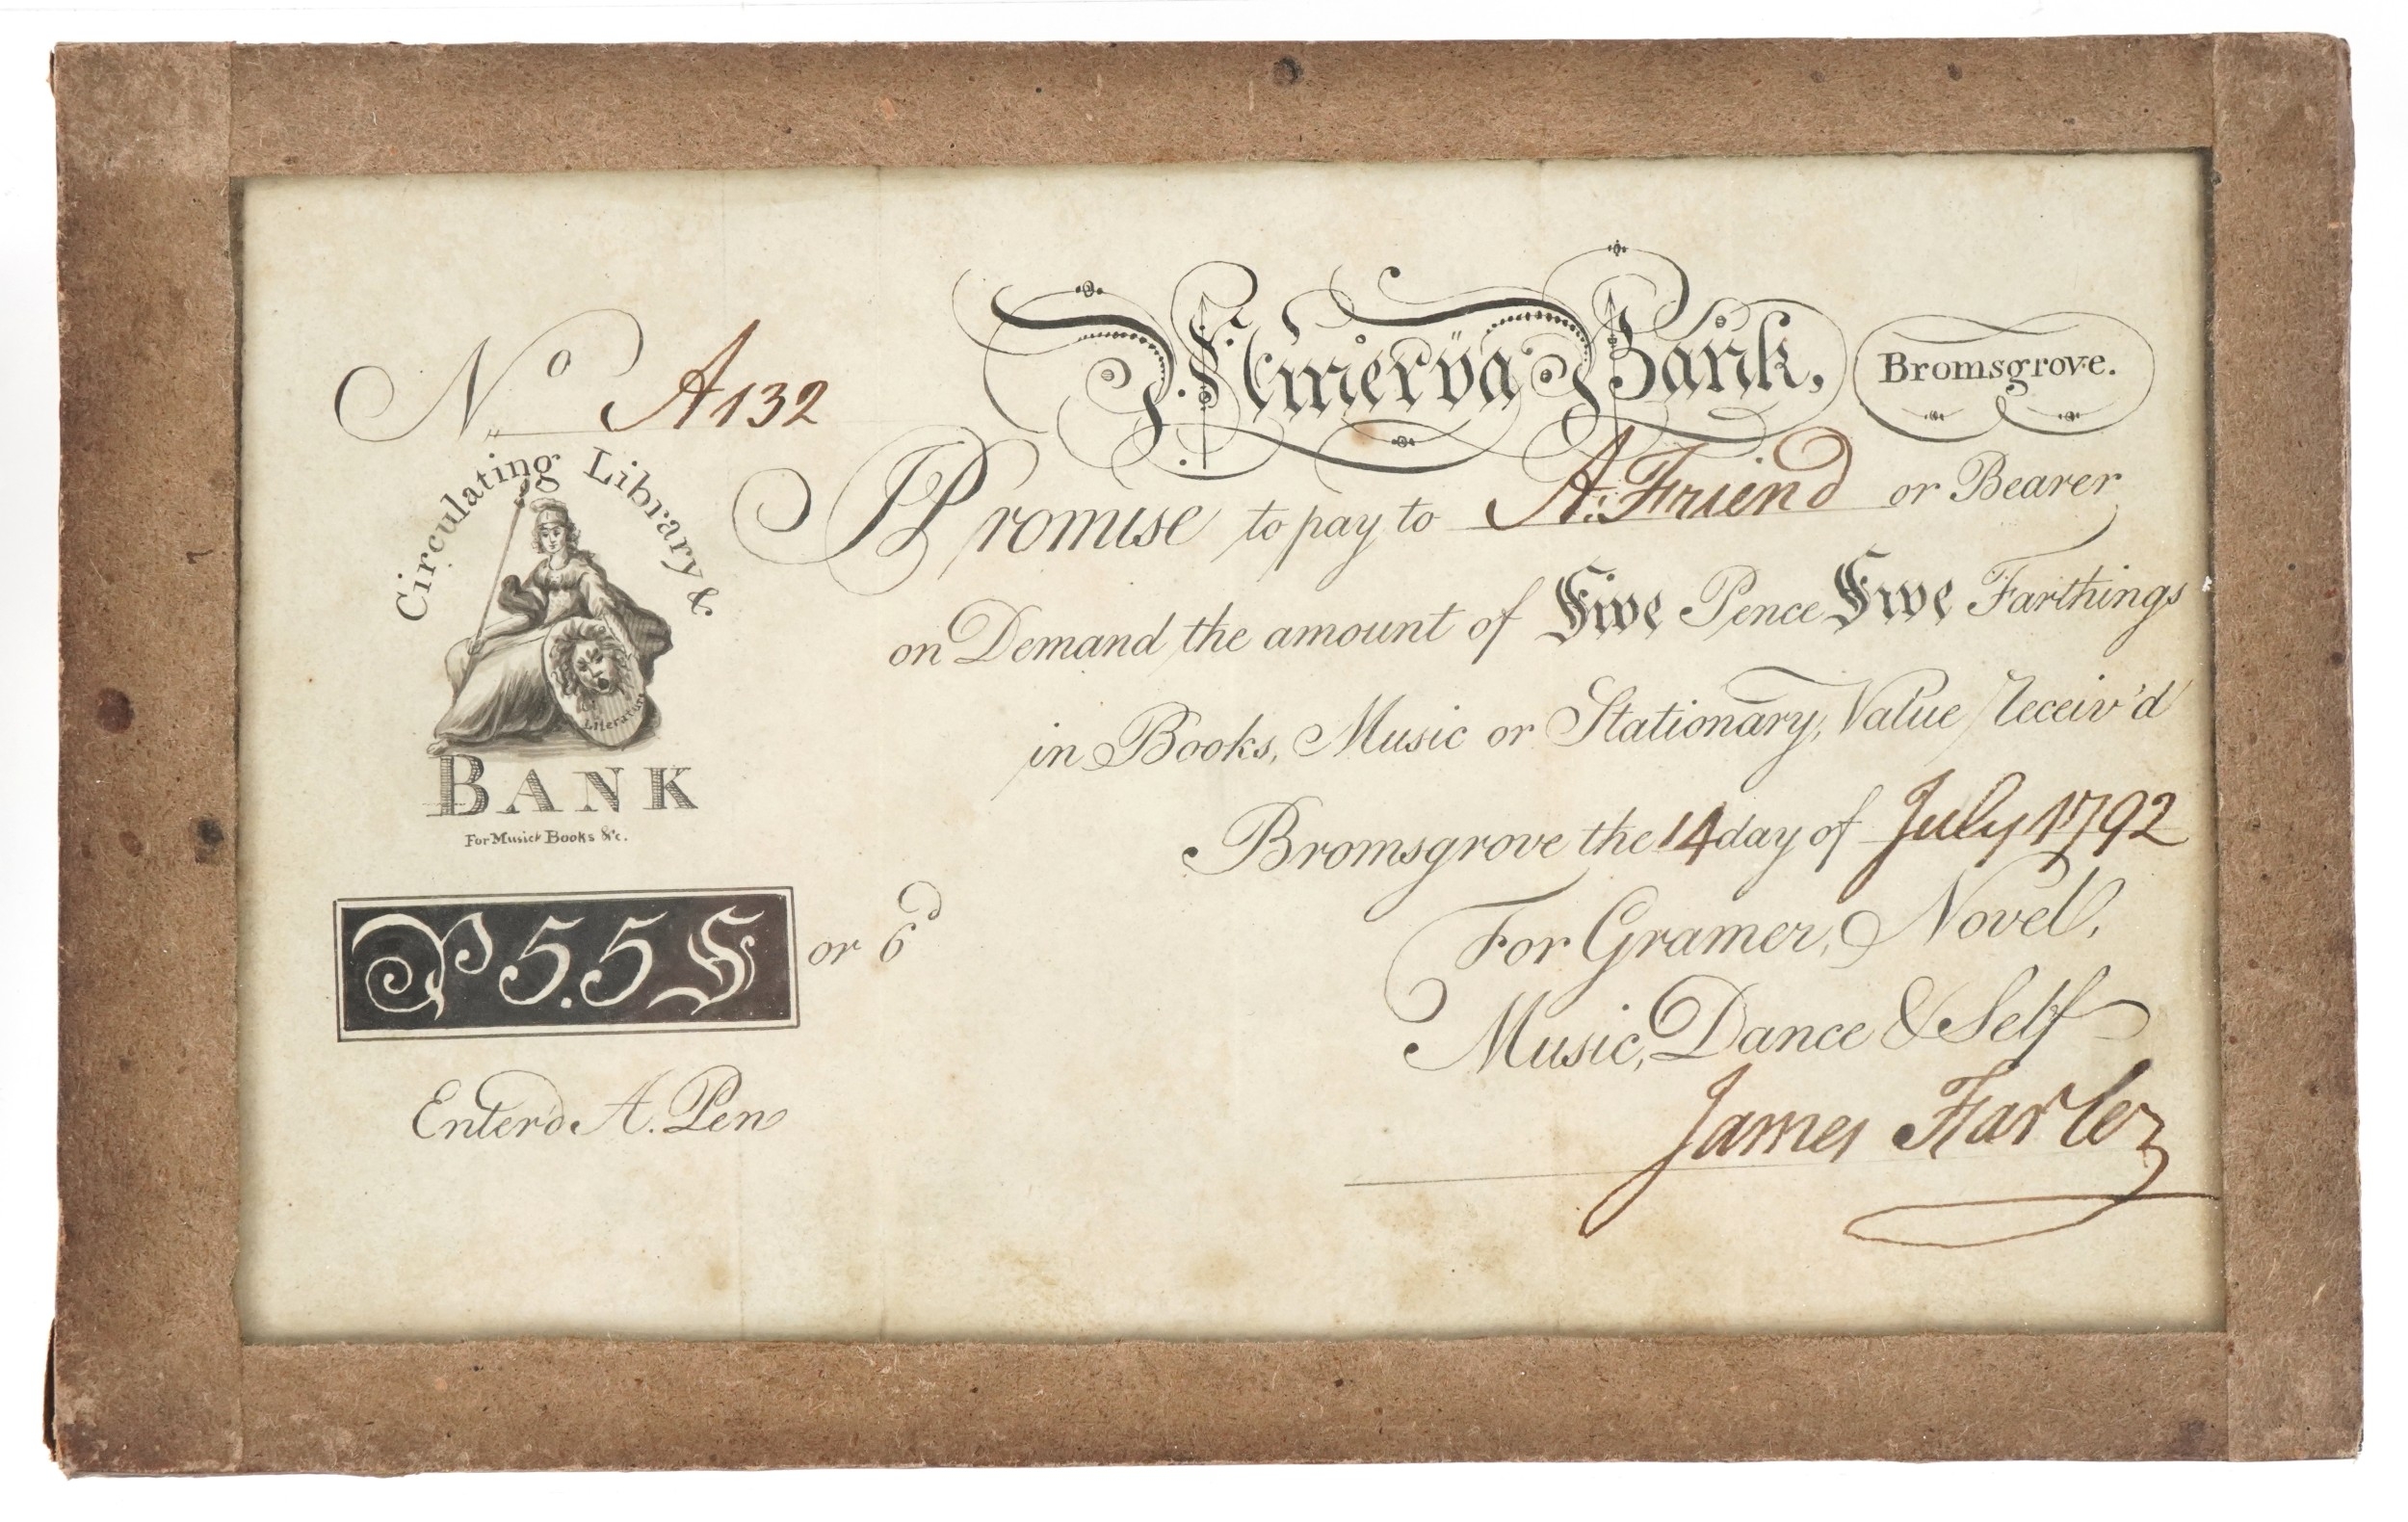 No A132
Minerva Bank, Bromsgrove.
Circulating Library &
I Promise to pay to A. Friend or Bearer
on Demand the amount of Five Pence Five Farthings
in Books, Music or Stationary, Value receiv'd
Literature
BANK
For Musick Books &c.
Bromsgrove the 14 day of July 1792
P 5.5 F or 6d
For Gramer, Novel,
Music, Dance & Self
Enter'd A. Pen
James